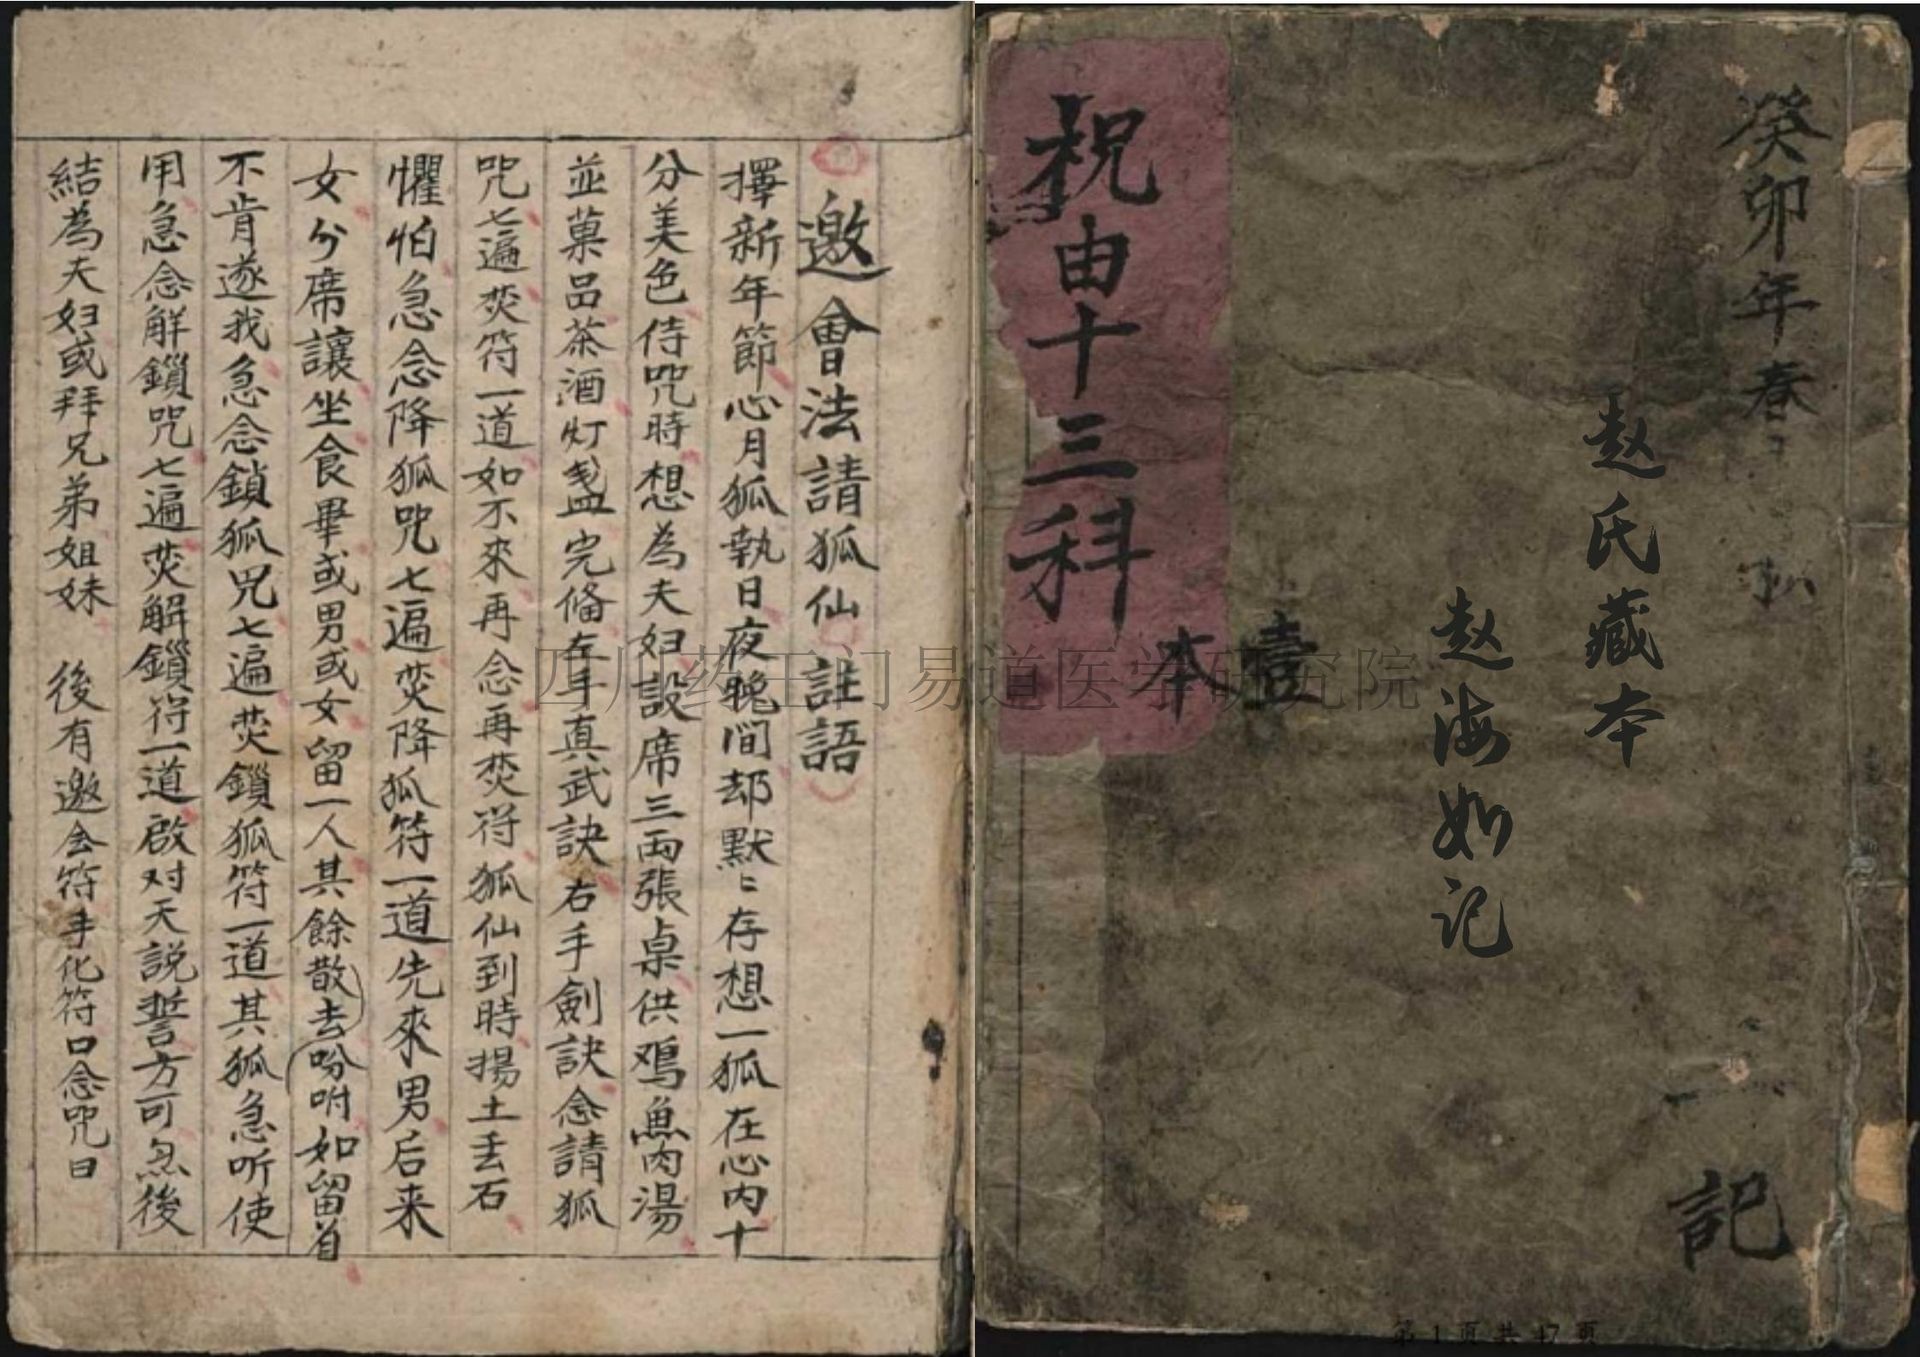 癸卯年春
記
赵氏藏本
赵海如记
壹
本
祝由十三科
邀會法請狐仙註語
擇新年節心月狐執日夜晚间却默〻存想一狐在心内十
分美色侍咒時想為夫妇設席三両張桌供鸡魚肉湯
並菓品茶酒灯盏完俻左手真武訣右手劍訣念請狐
咒七遍焚符一道如不來再念再焚符狐仙到時揚土丢石
懼怕急念降狐咒七遍焚降狐符一道先來男后来
女分席讓坐食畢或男或女留一人其餘散去吩咐如留者
不肯遂我急念鎖狐咒七遍焚鎖狐符一道其狐急听使
用急念解鎖咒七遍焚解鎖符一道啟对天説誓方可急後
結為夫妇或拜兄弟姐妹 後有邀会符手化符口念咒曰
四川药王门易道医学研究院
第 1 页 共 47 页